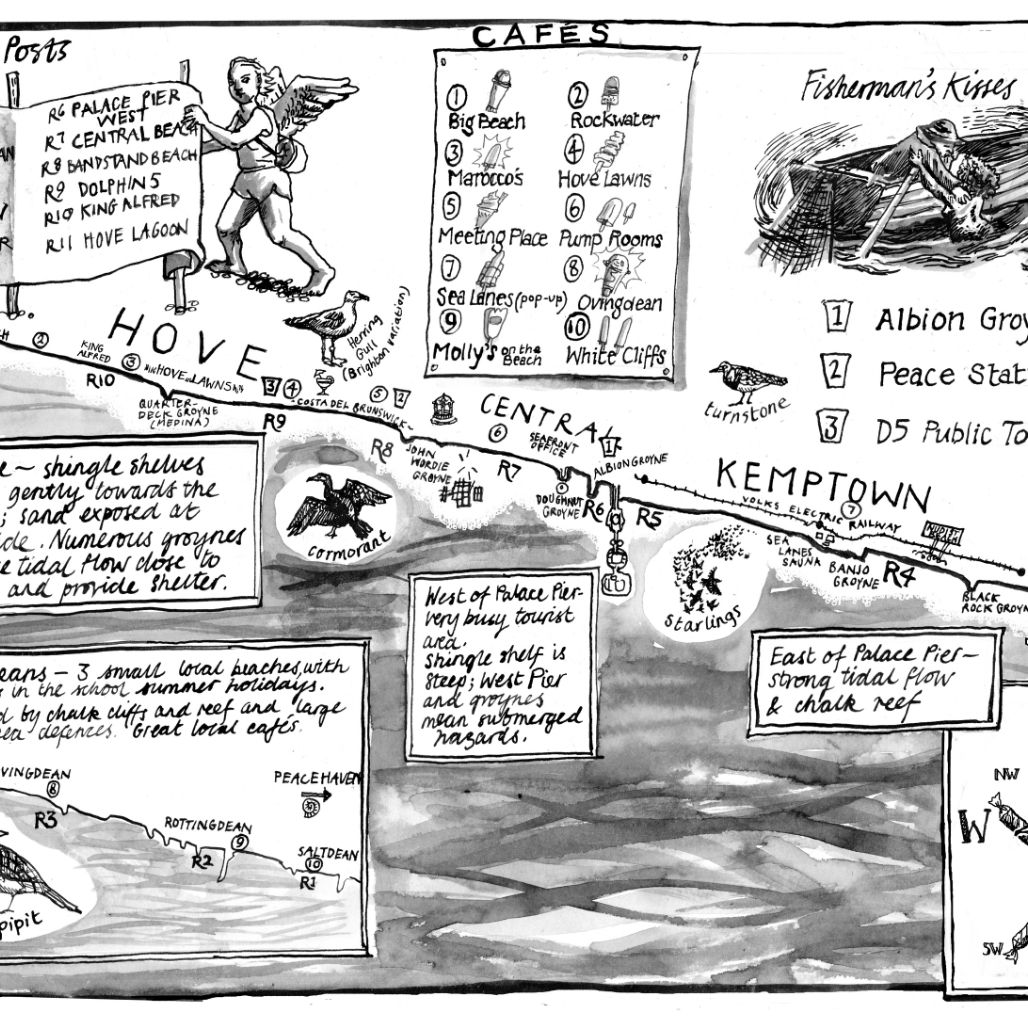 Posts
R6 PALACE PIER
WEST
R7 CENTRAL BEACH
R8 BANDSTAND BEACH
R9 DOLPHINS
R10 KING ALFRED
R11 HOVE LAGOON
CAFÉS
1 Big Beach
2 Rockwater
3 Marocco's
4 Hove Lawns
5 Meeting Place
6 Pump Rooms
7 Sea Lanes (pop-up)
8 Ovingdean
9 Molly's on the Beach
10 White Cliffs
Fisherman's Kisses
1 Albion Groy
2 Peace Stat
3 D5 Public To
turnstone
Herring
Gull
(Brighton variation)
HOVE
2
KING
ALFRED
3
HOVE LAWNS
R10
QUARTER-
DECK GROYNE
(MEDINA)
3
4
R9
COSTA DEL BRUNSWICK
5
2
R8
JOHN
WORDIE
GROYNE
CENTRAL
6
SEAFRONT
OFFICE
1
R7
ALBION GROYNE
DOUGHNUT
GROYNE
R6
R5
KEMPTOWN
VOLKS ELECTRIC RAILWAY
7
SEA
LANES
SAUNA
BANJO
GROYNE
R4
NUDIST
BLACK
ROCK GROYN
cormorant
starlings
e ~ shingle shelves
gently towards the
; sand exposed at
ide. Numerous groynes
e tidal flow close to
and provide shelter.
West of Palace Pier-
very busy tourist
area.
Shingle shelf is
steep; West Pier
and groynes
mean submerged
hazards.
East of Palace Pier ~
strong tidal flow
& chalk reef
eans - 3 small local beaches, with
s in the school summer holidays.
d by chalk cliffs and reef and large
ea defences. Great local cafés.
VINGDEAN
8
R3
PEACEHAVEN
ROTTINGDEAN
9
R2
SALTDEAN
10
R1
pipit
NW
W
SW